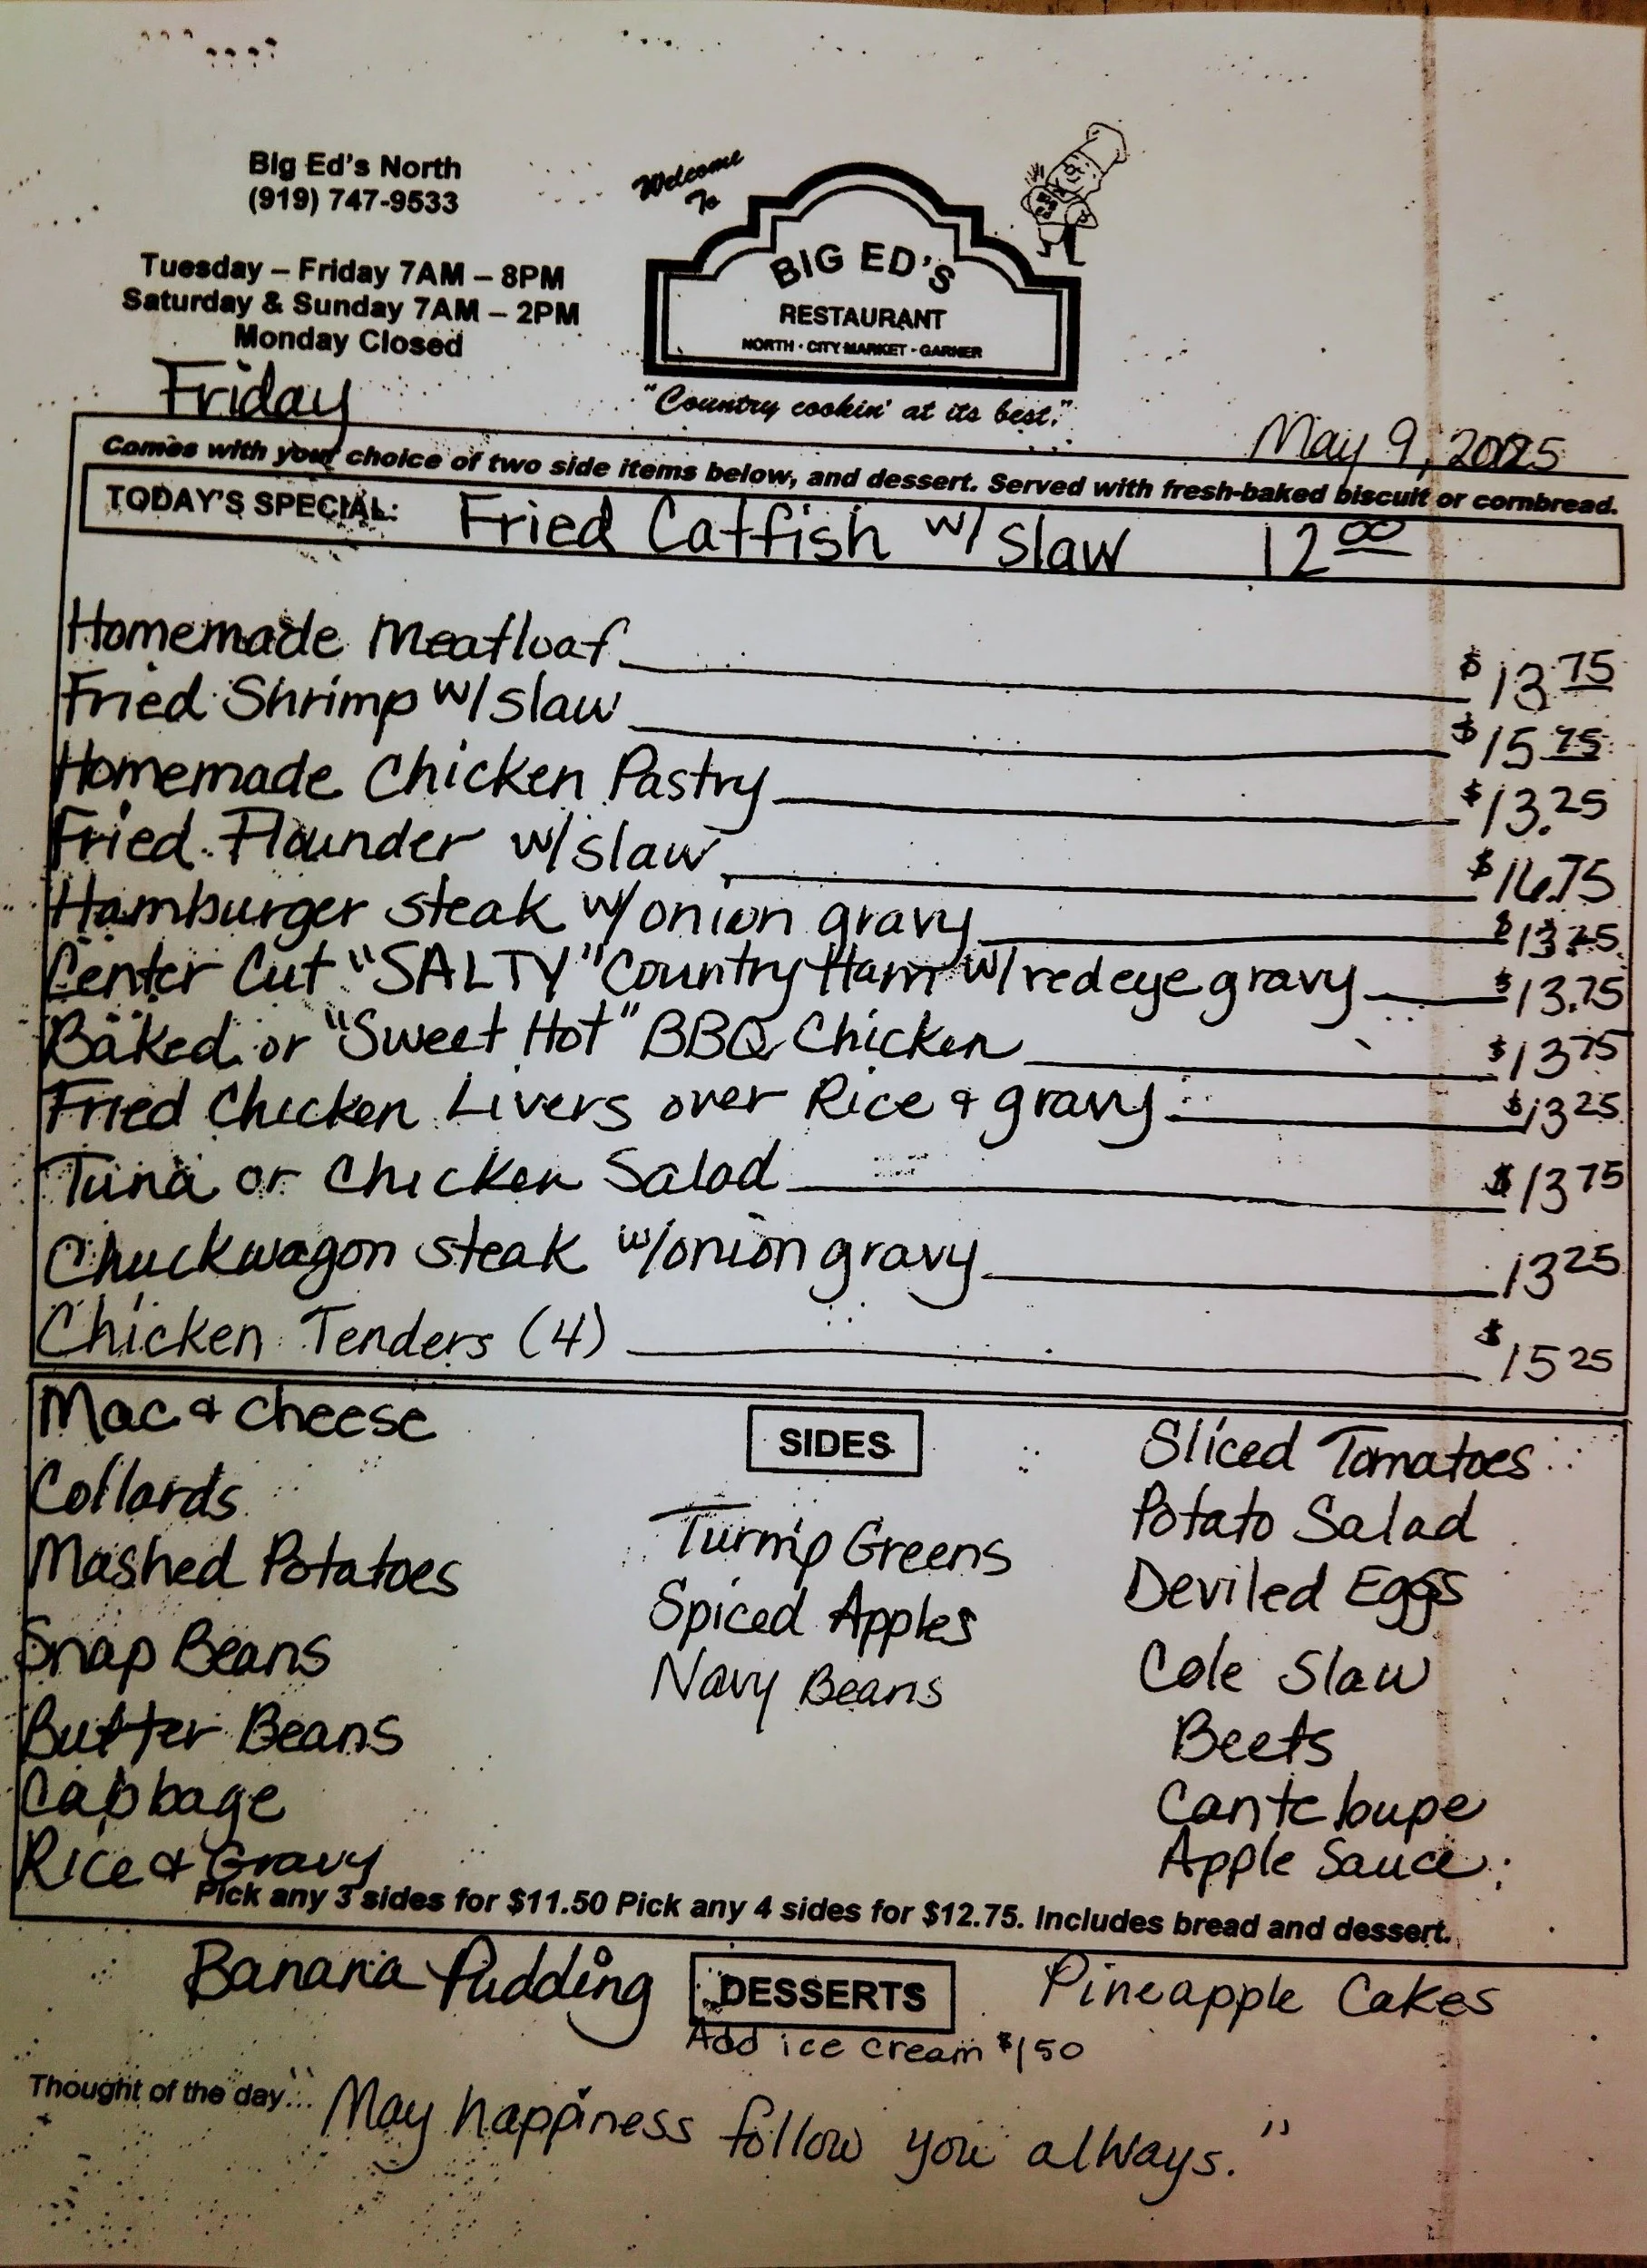 Big Ed's North
(919) 747-9533
Tuesday – Friday 7AM – 8PM
Saturday & Sunday 7AM – 2PM
Monday Closed
Welcome
To
BIG ED'S
RESTAURANT
NORTH · CITY MARKET · GARNER
"Country cookin' at its best."
Friday
May 9, 2025
Comes with your choice of two side items below, and dessert. Served with fresh-baked biscuit or cornbread.
TODAY'S SPECIAL: Fried Catfish w/ slaw 12 00
Homemade Meatloaf $13.75
Fried Shrimp w/slaw $15.75
Homemade Chicken Pastry $13.25
Fried Flounder w/slaw $16.75
Hamburger steak w/onion gravy
Center Cut "SALTY" Country Ham w/redeye gravy $13.75
Baked or "Sweet Hot" BBQ Chicken $13 75
Fried Chicken Livers over Rice & gravy $13 25
Tuna or Chicken Salad $13 75
Chuckwagon steak w/onion gravy 13 25
Chicken Tenders (4) $15 25
SIDES
Mac & Cheese
Collards
Mashed Potatoes
Snap Beans
Butter Beans
Cabbage
Rice & Gravy
Turnip Greens
Spiced Apples
Navy Beans
Sliced Tomatoes
Potato Salad
Deviled Eggs
Cole Slaw
Beets
Canteloupe
Apple Sauce
Pick any 3 sides for $11.50 Pick any 4 sides for $12.75. Includes bread and dessert.
Banana Pudding DESSERTS Pineapple Cakes
Add ice cream $1 50
Thought of the day... "May happiness follow you always."